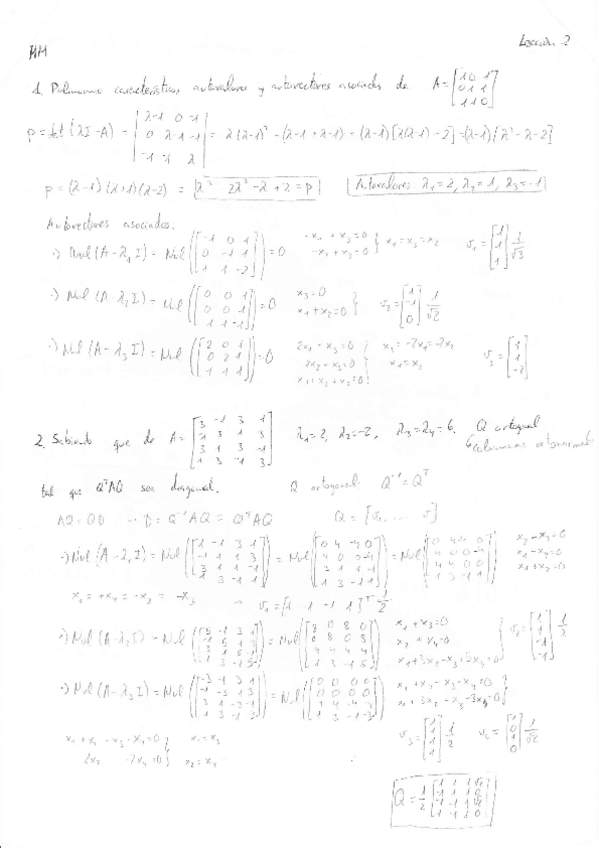 MM
Lección 2
1. Polinomio característico, autovalores y autovectores asociados de A = [1 0 1; 0 1 1; 1 1 0]
p = det(λI-A) = |λ-1 0 -1; 0 λ-1 -1; -1 -1 λ| = λ(λ-1)² - (λ-1 + λ-1) = (λ-1)[λ(λ-1) - 2] = (λ-1)[λ² - λ - 2]
p = (λ-1)(λ+1)(λ-2) = λ³ - 2λ² - λ + 2 = p
Autovalores: λ₁=2, λ₂=1, λ₃=-1
Autovectores asociados:
·) Nul(A-λ₁I) = Nul([-1 0 1; 0 -1 1; 1 1 -2]) = 0
-x₁ + x₃ = 0
-x₂ + x₃ = 0
} x₁ = x₃ = x₂
v₁ = [1; 1; 1] 1/√3
·) Nul(A-λ₂I) = Nul([0 0 1; 0 0 1; 1 1 -1]) = 0
x₃ = 0
x₁ + x₂ = 0 }
v₂ = [1; -1; 0] 1/√2
·) Nul(A-λ₃I) = Nul([2 0 1; 0 2 1; 1 1 1]) = 0
2x₁ + x₃ = 0
2x₂ + x₃ = 0
x₁ + x₂ + x₃ = 0
} x₃ = -2x₁ = -2x₂
x₁ = x₂
v₃ = [1; 1; -2]
2. Sabiendo que de A = [3 -1 3 1; -1 3 1 3; 3 1 3 -1; 1 3 -1 3] λ₁=2, λ₂=-2, λ₃=λ₄=6. Q ortogonal
columnas ortonormales
tal que QᵀAQ sea diagonal.
Q ortogonal: Q⁻¹ = Qᵀ
AQ = QD
D = Q⁻¹AQ = QᵀAQ
Q = [v₁ ... v]
·) Nul(A-λ₁I) = Nul([1 -1 3 1; -1 1 1 3; 3 1 1 -1; 1 3 -1 1])
v₁ = [1 -1 -1 1]ᵀ 1/2
·) Nul(A-λ₂I) = Nul([5 -1 3 1; -1 5 1 3; 3 1 5 -1; 1 3 -1 5])
x₁ + x₃ = 0
x₂ + x₄ = 0
v₂ = [1; 1; -1; -1] 1/2
·) Nul(A-λ₃I) = Nul([-3 -1 3 1; -1 -3 1 3; 3 1 -3 -1; 1 3 -1 -3])
x₁ + x₂ - x₃ - x₄ = 0
x₁ + 3x₂ - x₃ - 3x₄ = 0 }
x₁ + x₂ - x₃ - x₄ = 0 }
2x₂ - 2x₄ = 0 }
x₁ = x₃
x₂ = x₄
v₃ = [1; 1; 1; 1] 1/2
v₄ = [1; 0; 1; 0] 1/√2
Q = 1/2 [1 1 1 √2; -1 1 1 0; -1 -1 1 √2; 1 -1 1 0]